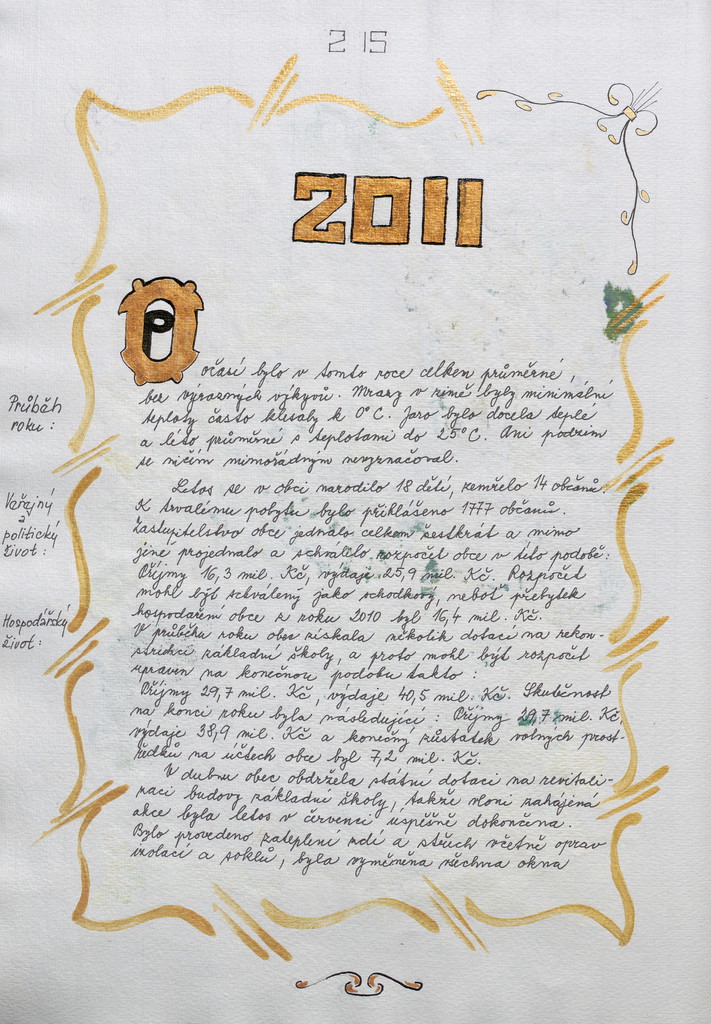 215
2011
Počasí bylo v tomto roce celkem průměrné,
bez výrazných výkyvů. Mrazy v zimě byly minimální
teploty často klesaly k 0°C. Jaro bylo docela teplé
a léto průměrné s teplotami do 25°C. Ani podzim
se ničím mimořádným nevyznačoval.
Průběh
roku:
Letos se v obci narodilo 18 dětí, zemřelo 14 občanů.
K trvalému pobytu bylo přihlášeno 1777 občanů.
Zastupitelstvo obce jednalo celkem šestkrát a mimo
jiné projednalo a schválilo rozpočet obce v této podobě:
Příjmy 16,3 mil. Kč, výdaje 25,9 mil. Kč. Rozpočet
mohl být schválený jako schodkový, neboť přebytek
hospodaření obce z roku 2010 byl 16,4 mil. Kč.
Veřejný
a
politický
život:
Hospodářský
život:
V průběhu roku obec získala několik dotací na rekon-
strukci základní školy, a proto mohl být rozpočet
upraven na konečnou podobu takto:
Příjmy 29,7 mil. Kč, výdaje 40,5 mil. Kč. Skutečnost
na konci roku byla následující: Příjmy 29,7 mil. Kč,
výdaje 38,9 mil. Kč a konečný zůstatek volných prost-
ředků na účtech obce byl 7,2 mil. Kč.
V dubnu obec obdržela státní dotaci na revitali-
zaci budovy základní školy, takže vloni zahájená
akce byla letos v červenci úspěšně dokončena.
Bylo provedeno zateplení zdí a střech včetně oprav
izolací a soklů, byla vyměněna všechna okna